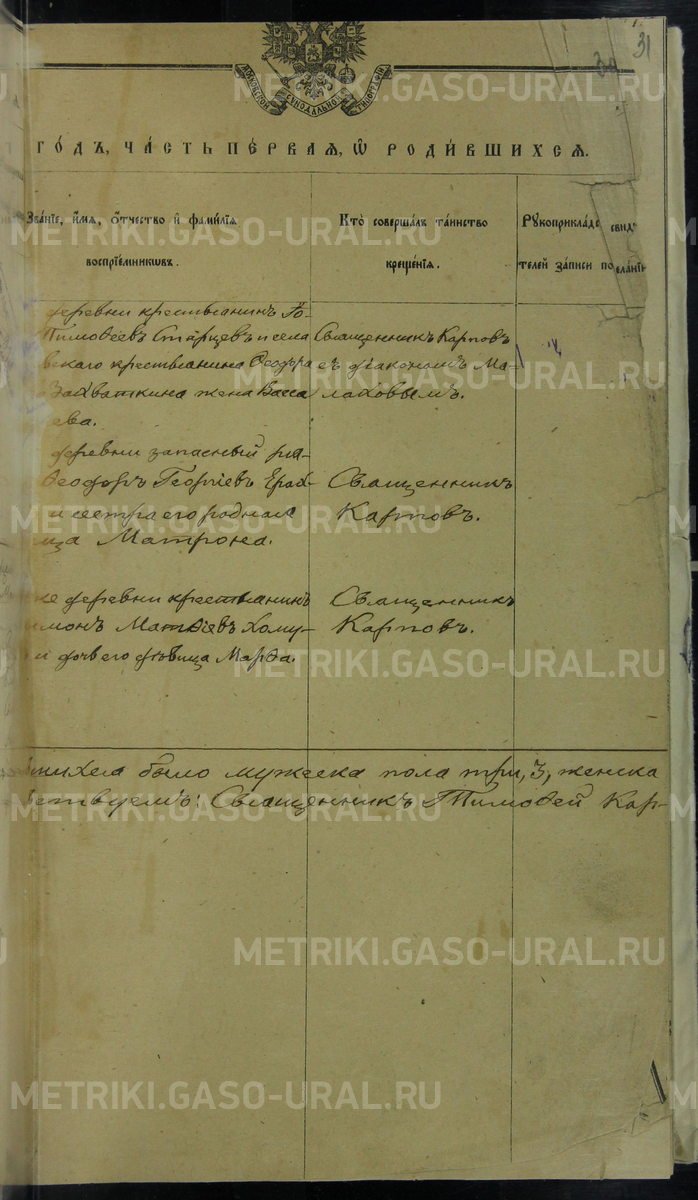 31
МОСКОВСКОЙ СѴНОДАЛЬНОЙ ТИПОГРАФІИ
ГО́ДЪ, ЧА́СТЬ ПЕ́РВАѦ, Ѡ҆ РОДИ́ВШИХСѦ.
Зва́нїе, и҆́мѧ, ѻ҆́тчество и҆ фамѝлїѧ
воспрїе́мникѡвъ.
Кто̀ соверша́лъ та́инство
креще́нїѧ.
Рꙋкоприкла́дс свид
телей за́писи по еланїю
деревни крестьянинъ
Тимоѳеевъ Старцевъ и села
вскаго крестьянина Ѳеодора
Захваткина жена Васса
ева.
Священникъ Карповъ
съ діакономъ Ма-
лаховымъ.
деревни запасный ря-
Ѳеодоръ Георгіевъ
и сестра его родная
ица Матрона.
Священникъ
Карповъ.
же деревни крестьянинъ
имонъ Матѳіевъ Хому-
и дочь его дѣвица Марѳа.
Священникъ
Карповъ.
вшихся было мужеска пола три, 3, женска
етвуемъ: Священникъ Тимоѳей Кар-
METRIKI.GASO-URAL.RU
METRIKI.GASO-URAL.RU
METRIKI.GASO-URAL.RU
METRIKI.GASO-URAL.RU
METRIKI.GASO-URAL.RU
METRIKI.GASO-URAL.RU
METRIKI.GASO-URAL.RU
METRIKI.GASO-URAL.RU